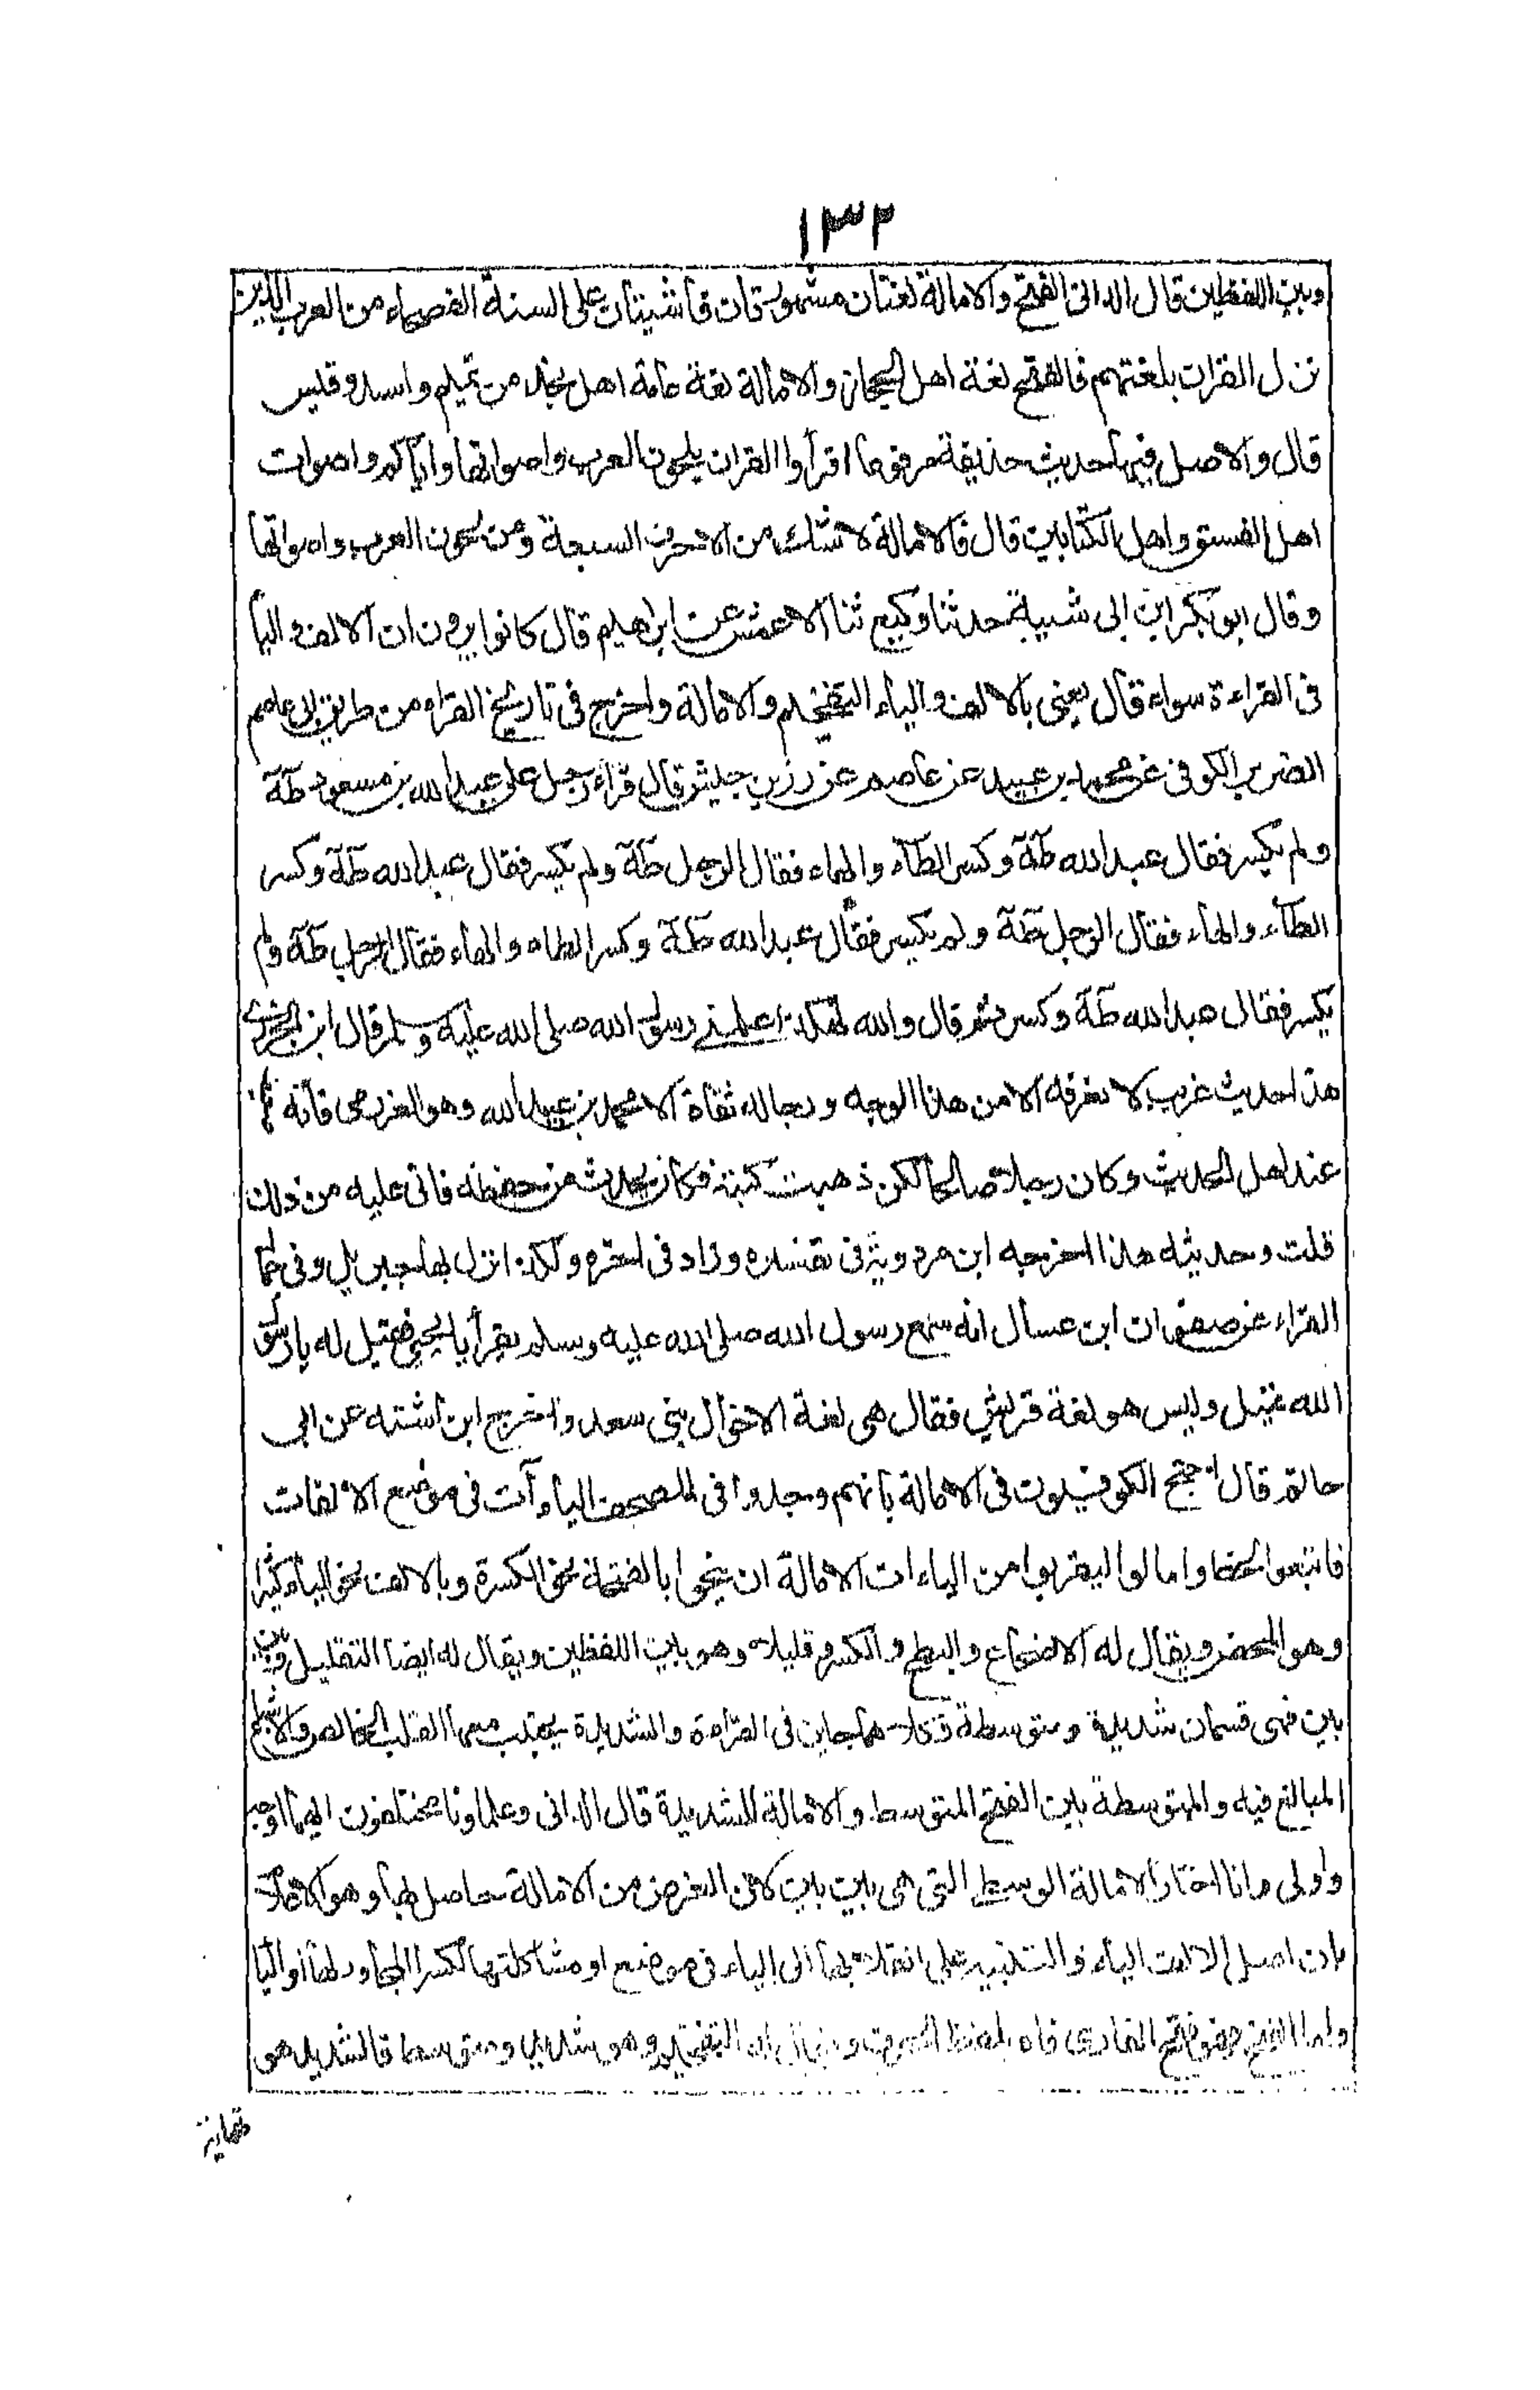 ١٣٢
وبين اللفظين قال الدانى الفتح والامالة لغتان مشهورتان فاشيتان على السنة الفصحاء من العرب الذين
نزل القران بلغتهم فالفتح لغة اهل الحجاز والامالة لغة عامة اهل نجد من تميم واسد وقيس
قال والاصل فيها حديث حذيفة مرفوعا اقرأوا القران بلحون العرب واصواتها واياكم واصوات
اهل الفسق واهل الكتابين قال فالامالة لا شك من الاحرف السبعة ومن لحون العرب واصواتها
وقال ابو بكر ابن ابى شيبة حدثنا وكيع ثنا الاعمش عن ابراهيم قال كانوا يرون ان الالف واليا
فى القراءة سواء قال يعنى بالالف والياء التفخيم والامالة واخرج فى تاريخ القراء من طريق ابى عاصم
الضرير الكوفى عن محمد بن عبيد عن عاصم عن زر بن حبيش قال قرأ رجل على عبد الله بن مسعود طه
ولم يكسر فقال عبد الله طه وكسر الطاء والهاء فقال الرجل طه ولم يكسر فقال عبد الله طه وكسر
الطاء والهاء فقال الرجل طه ولم يكسر فقال عبد الله طه وكسر الطاء والهاء فقال الرجل طه ولم
يكسر فقال عبد الله طه وكسر ثم قال والله لهكذا علمنى رسول الله صلى الله عليه وسلم قال ابن الجزرى
هذا حديث غريب لا نعرفه الا من هذا الوجه ورجاله ثقاة الا محمد بن عبيد الله وهو العزرمى فانه
عند اهل الحديث وكان رجلا صالحا لكن ذهبت كتبه فكان يحدث من حفظه فاتى عليه من ذلك
قلت وحديثه هذا اخرجه ابن مردويه فى تفسيره وزاد فى اخره وكذا انزل بها جبريل وفى جمال
القراء عن صفوان ابن عسال انه سمع رسول الله صلى الله عليه وسلم يقرأ يا يحيى فقيل له يا رسول
الله تميل وليس هو لغة قريش فقال هى لغة الاخوال بنى سعد واخرج ابن اشته عن ابى
حاتم قال احتج الكوفيون فى الامالة بانهم وجدوا فى المصحف الياءات فى موضع الالفات
فاتبعوا الخط وامالوا ليقربوا من الياءات الامالة ان ينحوا بالفتحة نحو الكسرة وبالالف نحو الياء كثيرا
وهو المحض ويقال له الاضجاع والبطح والكسر وقليلا وهو بين اللفظين ويقال له ايضا التقليل وبين
بين فهى قسمان شديدة ومتوسطة وكلاهما جايز فى القراءة والشديدة يجتنب معها القلب الخالص والاشباع
المبالغ فيه والمتوسطة بين الفتح المتوسط والامالة الشديدة قال الدانى وعلماونا مختلفون ايهما اوجه
واولى وانا اختار الامالة الوسطى التى هى بين بين لان الغرض من الامالة حاصل بها وهو الاعلام
بان اصل الالف الياء والتنبيه على انقلابها الى الياء فى موضع او مشاكلتها للكسر المجاور لها او اليا
واما الفتح فهو فتح القارى فاه بلفظ الحرف ويقال له التفخيم وهو شديد ومتوسط فالشديد هو